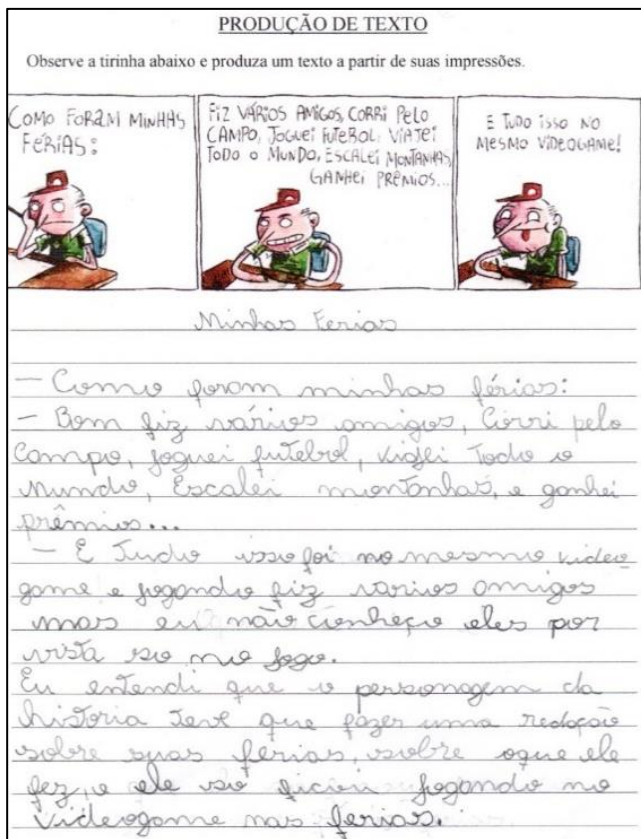 PRODUÇÃO DE TEXTO
Observe a tirinha abaixo e produza um texto a partir de suas impressões.
COMO FORAM MINHAS
FÉRIAS:
FIZ VÁRIOS AMIGOS, CORRI PELO
CAMPO, JOGUEI FUTEBOL, VIAJEI
TODO O MUNDO, ESCALEI MONTANHAS,
GANHEI PRÊMIOS...
E TUDO ISSO NO
MESMO VIDEOGAME!
Minhas Ferias
— Como foram minhas férias:
— Bom fiz vários amigos, Corri pelo
Campo, joguei futebol, viajei Todo o
Mundo, Escalei montanhas, e ganhei
prêmios...
— E Tudo isso foi no mesmo video
game e jogando fiz varios amigos
mais eu não conheço eles por
vista so no jogo.
Eu entendi que o personagem da
historia teve que fazer uma redação
sobre suas ferias, sobre oque ele
fez, e ele so ficou jogando no
Videogame nas ferias.